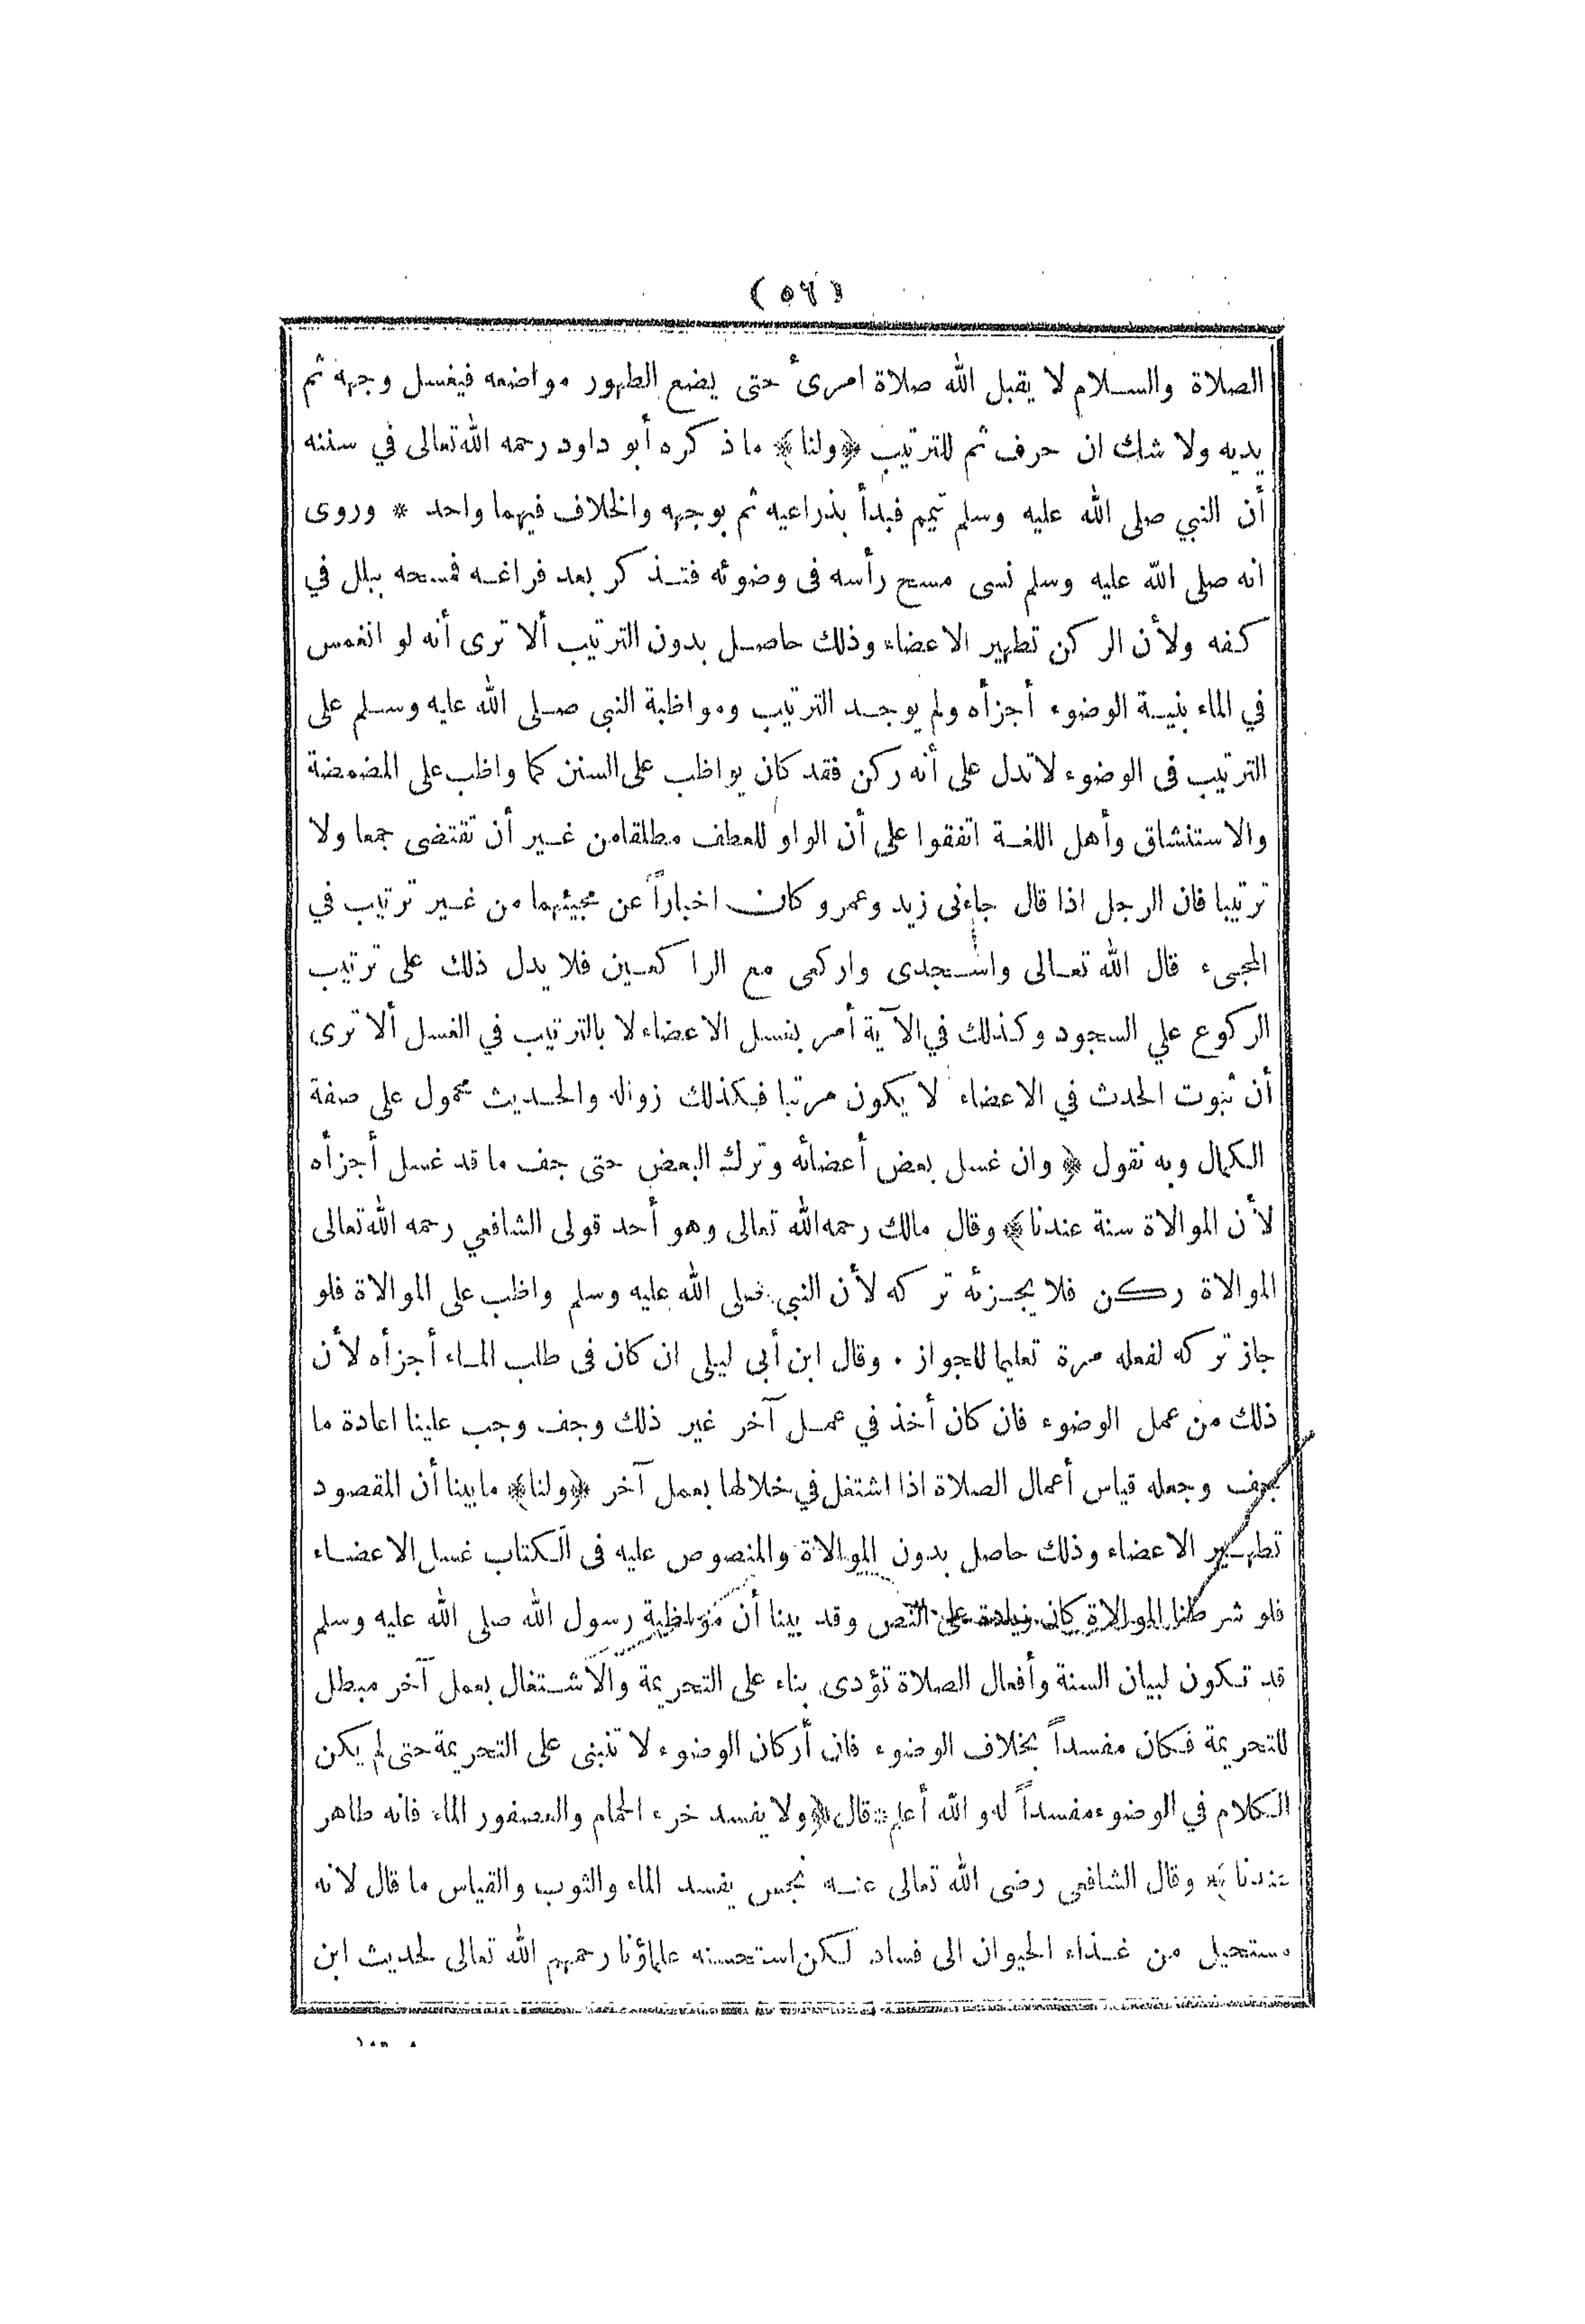 (٥٦)
الصلاة والسلام لا يقبل الله صلاة امرئ حتى يضع الطهور مواضعه فيغسل وجهه ثم
يديه ولا شك ان حرف ثم للترتيب ﴿ولنا﴾ ما ذكره أبو داود رحمه الله تعالى في سننه
أن النبي صلى الله عليه وسلم تيمم فبدأ بذراعيه ثم بوجهه والخلاف فيهما واحد * وروى
انه صلى الله عليه وسلم نسى مسح رأسه فى وضوئه فتذكر بعد فراغه فمسحه ببلل في
كفه ولأن الركن تطهير الاعضاء وذلك حاصل بدون الترتيب ألا ترى أنه لو انغمس
في الماء بنية الوضوء أجزأه ولم يوجد الترتيب ومواظبة النبي صلى الله عليه وسلم على
الترتيب فى الوضوء لا تدل على أنه ركن فقد كان يواظب على السنن كما واظب على المضمضة
والاستنشاق وأهل اللغة اتفقوا على أن الواو للعطف مطلقا من غير أن تقتضى جمعا ولا
ترتيبا فان الرجل اذا قال جاءنى زيد وعمرو كان اخباراً عن مجيئهما من غير ترتيب في
المجىء قال الله تعالى واسجدى واركعى مع الراكعين فلا يدل ذلك على ترتيب
الركوع علي السجود وكذلك في الآية أمر بغسل الاعضاء لا بالترتيب في الغسل ألا ترى
أن ثبوت الحدث في الاعضاء لا يكون مرتبا فكذلك زواله والحديث محمول على صفة
الكمال وبه نقول ﴿وان غسل بعض أعضائه وترك البعض حتى جف ما قد غسل أجزأه
لأن الموالاة سنة عندنا﴾ وقال مالك رحمه الله تعالى وهو أحد قولى الشافعي رحمه الله تعالى
الموالاة ركن فلا يجزئه تركه لأن النبي صلى الله عليه وسلم واظب على الموالاة فلو
جاز تركه لفعله مرة تعليما للجواز . وقال ابن أبى ليلى ان كان فى طلب الماء أجزأه لأن
ذلك من عمل الوضوء فان كان أخذ في عمل آخر غير ذلك وجف وجب علينا اعادة ما
يجف وجعله قياس أعمال الصلاة اذا اشتغل في خلالها بعمل آخر ﴿ولنا﴾ ما بينا أن المقصود
تطهير الاعضاء وذلك حاصل بدون الموالاة والمنصوص عليه فى الكتاب غسل الاعضاء
فلو شرطنا الموالاة كان زيادة على النص وقد بينا أن مواظبة رسول الله صلى الله عليه وسلم
قد تكون لبيان السنة وأفعال الصلاة تؤدى بناء على التحريمة والاشتغال بعمل آخر مبطل
للتحريمة فكان مفسداً بخلاف الوضوء فان أركان الوضوء لا تنبنى على التحريمة حتى لم يكن
الكلام في الوضوء مفسداً له والله أعلم * قال ﴿ولا يفسد خرء الحمام والعصفور الماء فانه طاهر
عندنا﴾ وقال الشافعى رضى الله تعالى عنه نجس يفسد الماء والثوب والقياس ما قال لانه
مستحيل من غذاء الحيوان الى فساد لكن استحسنه علماؤنا رحمهم الله تعالى لحديث ابن